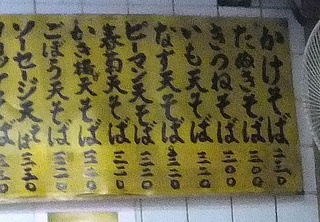 かけそば
たぬきそば 三〇〇
きつねそば 三〇〇
いも天そば 三二〇
なす天そば 三二〇
ピーマン天そば 三二〇
春菊天そば 三二〇
かき揚天そば 三二〇
ごぼう天そば 三二〇
ソーセージ天そば